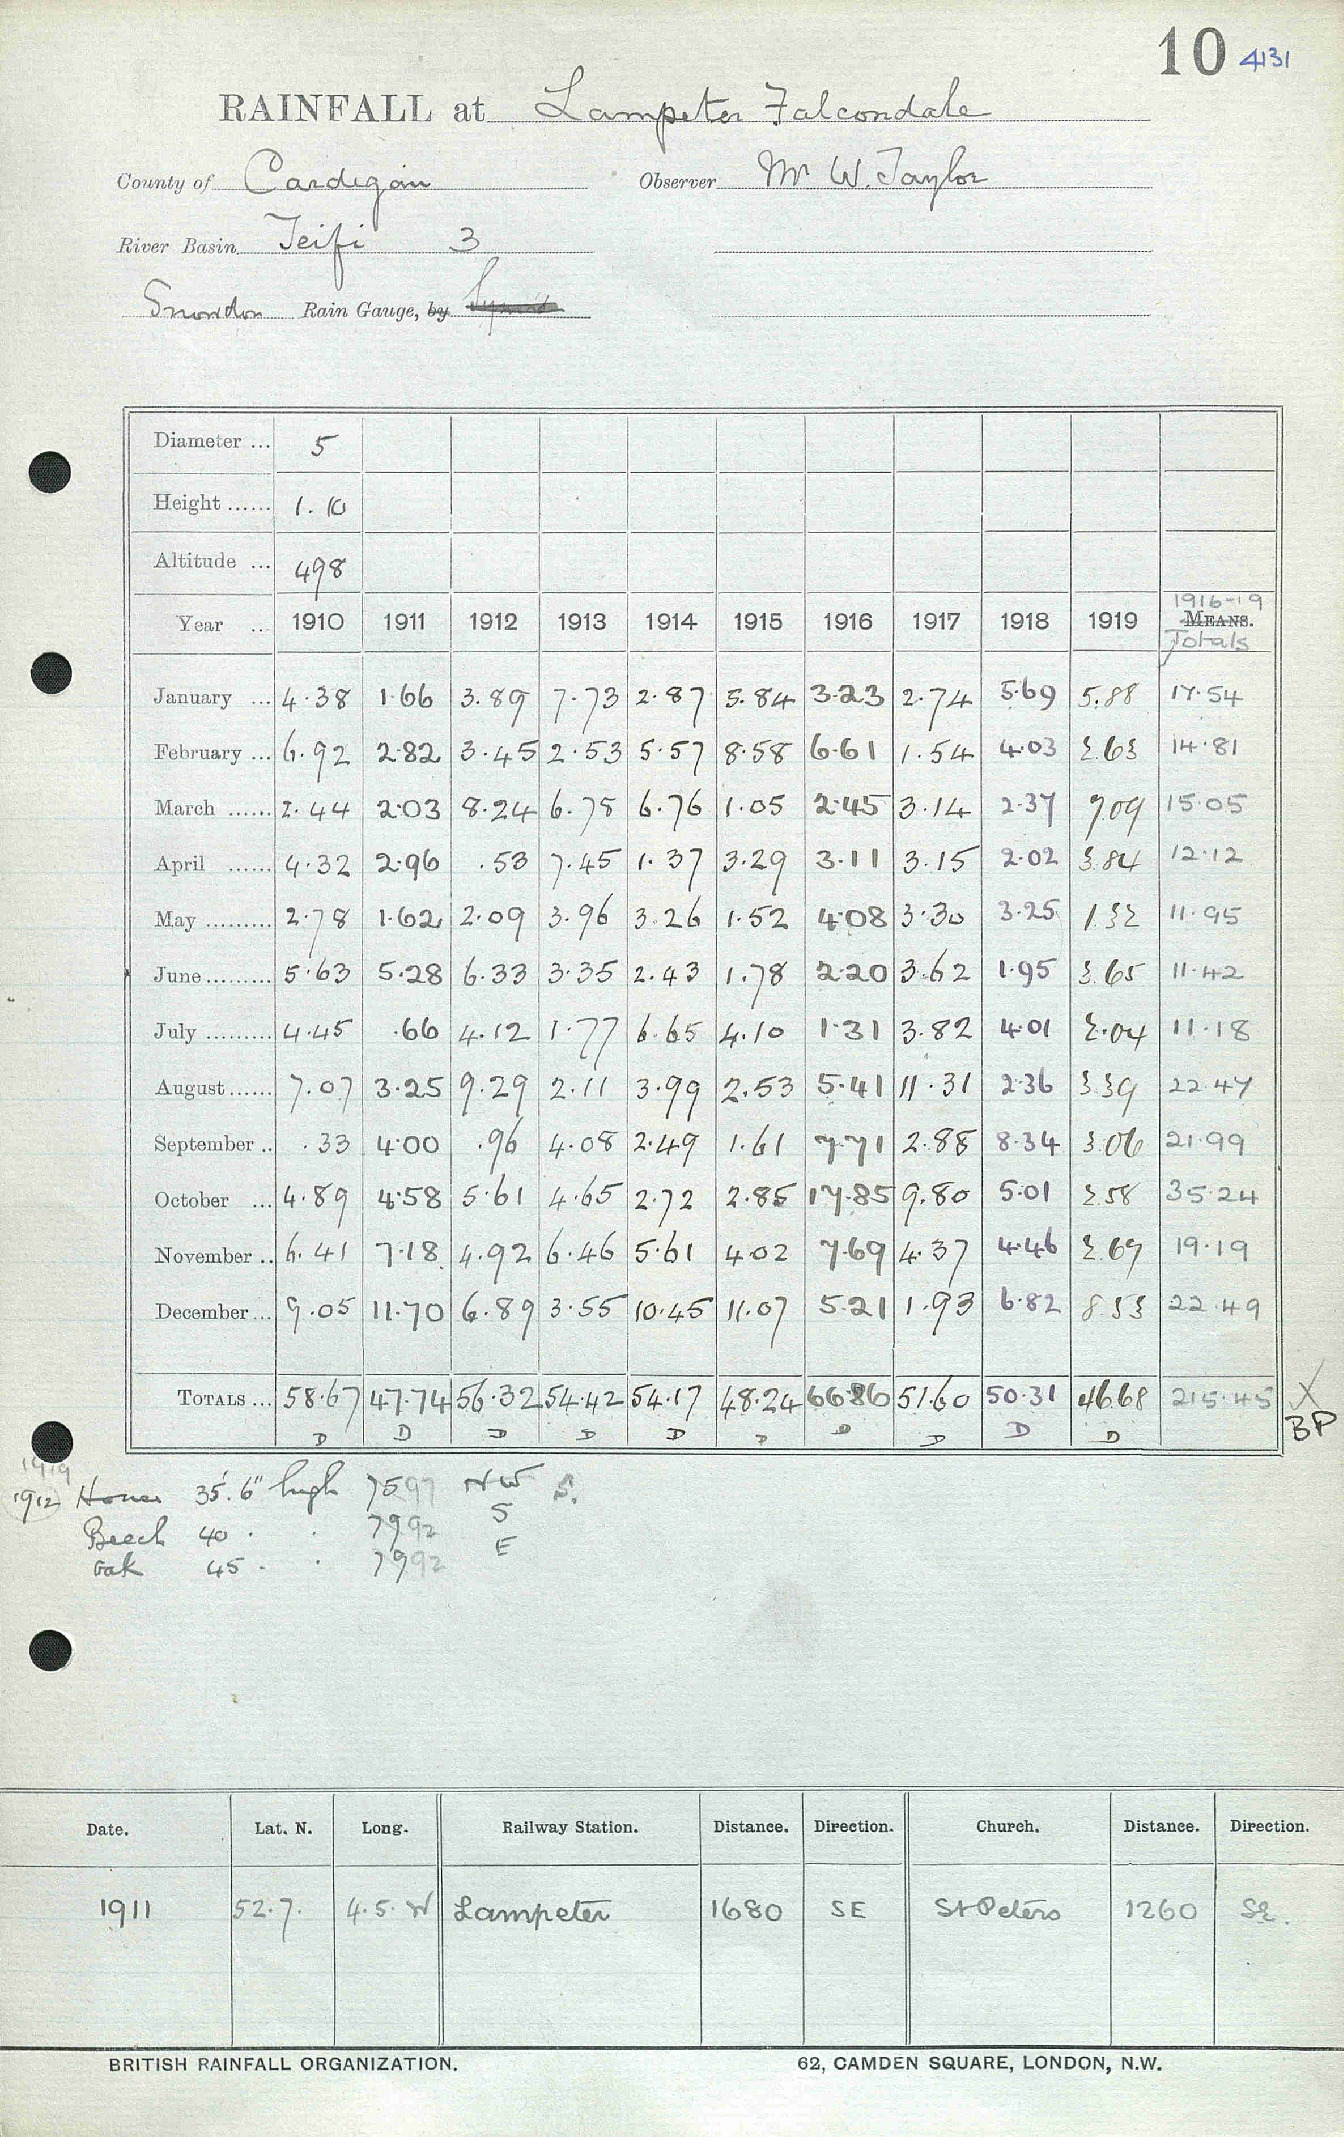 10 4131
RAINFALL at Lampeter Falcondale
County of Cardigan Observer Mr W. Taylor
River Basin Teifi 3
Snowdon Rain Gauge, by
Diameter ... 5
Height ...... 1.10
Altitude ... 498
1916-19
Year ... 1910 1911 1912 1913 1914 1915 1916 1917 1918 1919 MEANS.
Totals
January ... 4.38 1.66 3.89 7.73 2.87 5.84 3.23 2.74 5.69 5.88 17.54
February ... 6.92 2.82 3.45 2.53 5.57 8.58 6.61 1.54 4.03 2.63 14.81
March ...... 2.44 2.03 8.24 6.78 6.76 1.05 2.45 3.14 2.37 7.09 15.05
April ...... 4.32 2.96 .53 7.45 1.37 3.29 3.11 3.15 2.02 3.84 12.12
May ......... 2.78 1.62 2.09 3.96 3.26 1.52 4.08 3.30 3.25 1.32 11.95
June ......... 5.63 5.28 6.33 3.35 2.43 1.78 2.20 3.62 1.95 3.65 11.42
July ......... 4.45 .66 4.12 1.77 6.65 4.10 1.31 3.82 4.01 2.04 11.18
August ...... 7.07 3.25 9.29 2.11 3.99 2.53 5.41 11.31 2.36 3.39 22.47
September .. .33 4.00 .96 4.08 2.49 1.61 7.71 2.88 8.34 3.06 21.99
October ... 4.89 4.58 5.61 4.65 2.72 2.85 17.85 9.80 5.01 2.58 35.24
November .. 6.41 7.18 4.92 6.46 5.61 4.02 7.69 4.37 4.46 2.67 19.19
December ... 9.05 11.70 6.89 3.55 10.45 11.07 5.21 1.93 6.82 8.53 22.49
TOTALS ... 58.67 47.74 56.32 54.42 54.17 48.24 66.86 51.60 50.31 46.68 215.45 X
D D D D D D D D D D BP
1919
1912 House 35'.6" high 7597 NW S.
Beech 40 . . 7992 S
Oak 45 . . 7992 E
Date. Lat. N. Long. Railway Station. Distance. Direction. Church. Distance. Direction.
1911 52.7. 4.5. W Lampeter 1680 SE St Peters 1260 SE.
BRITISH RAINFALL ORGANIZATION. 62, CAMDEN SQUARE, LONDON, N.W.